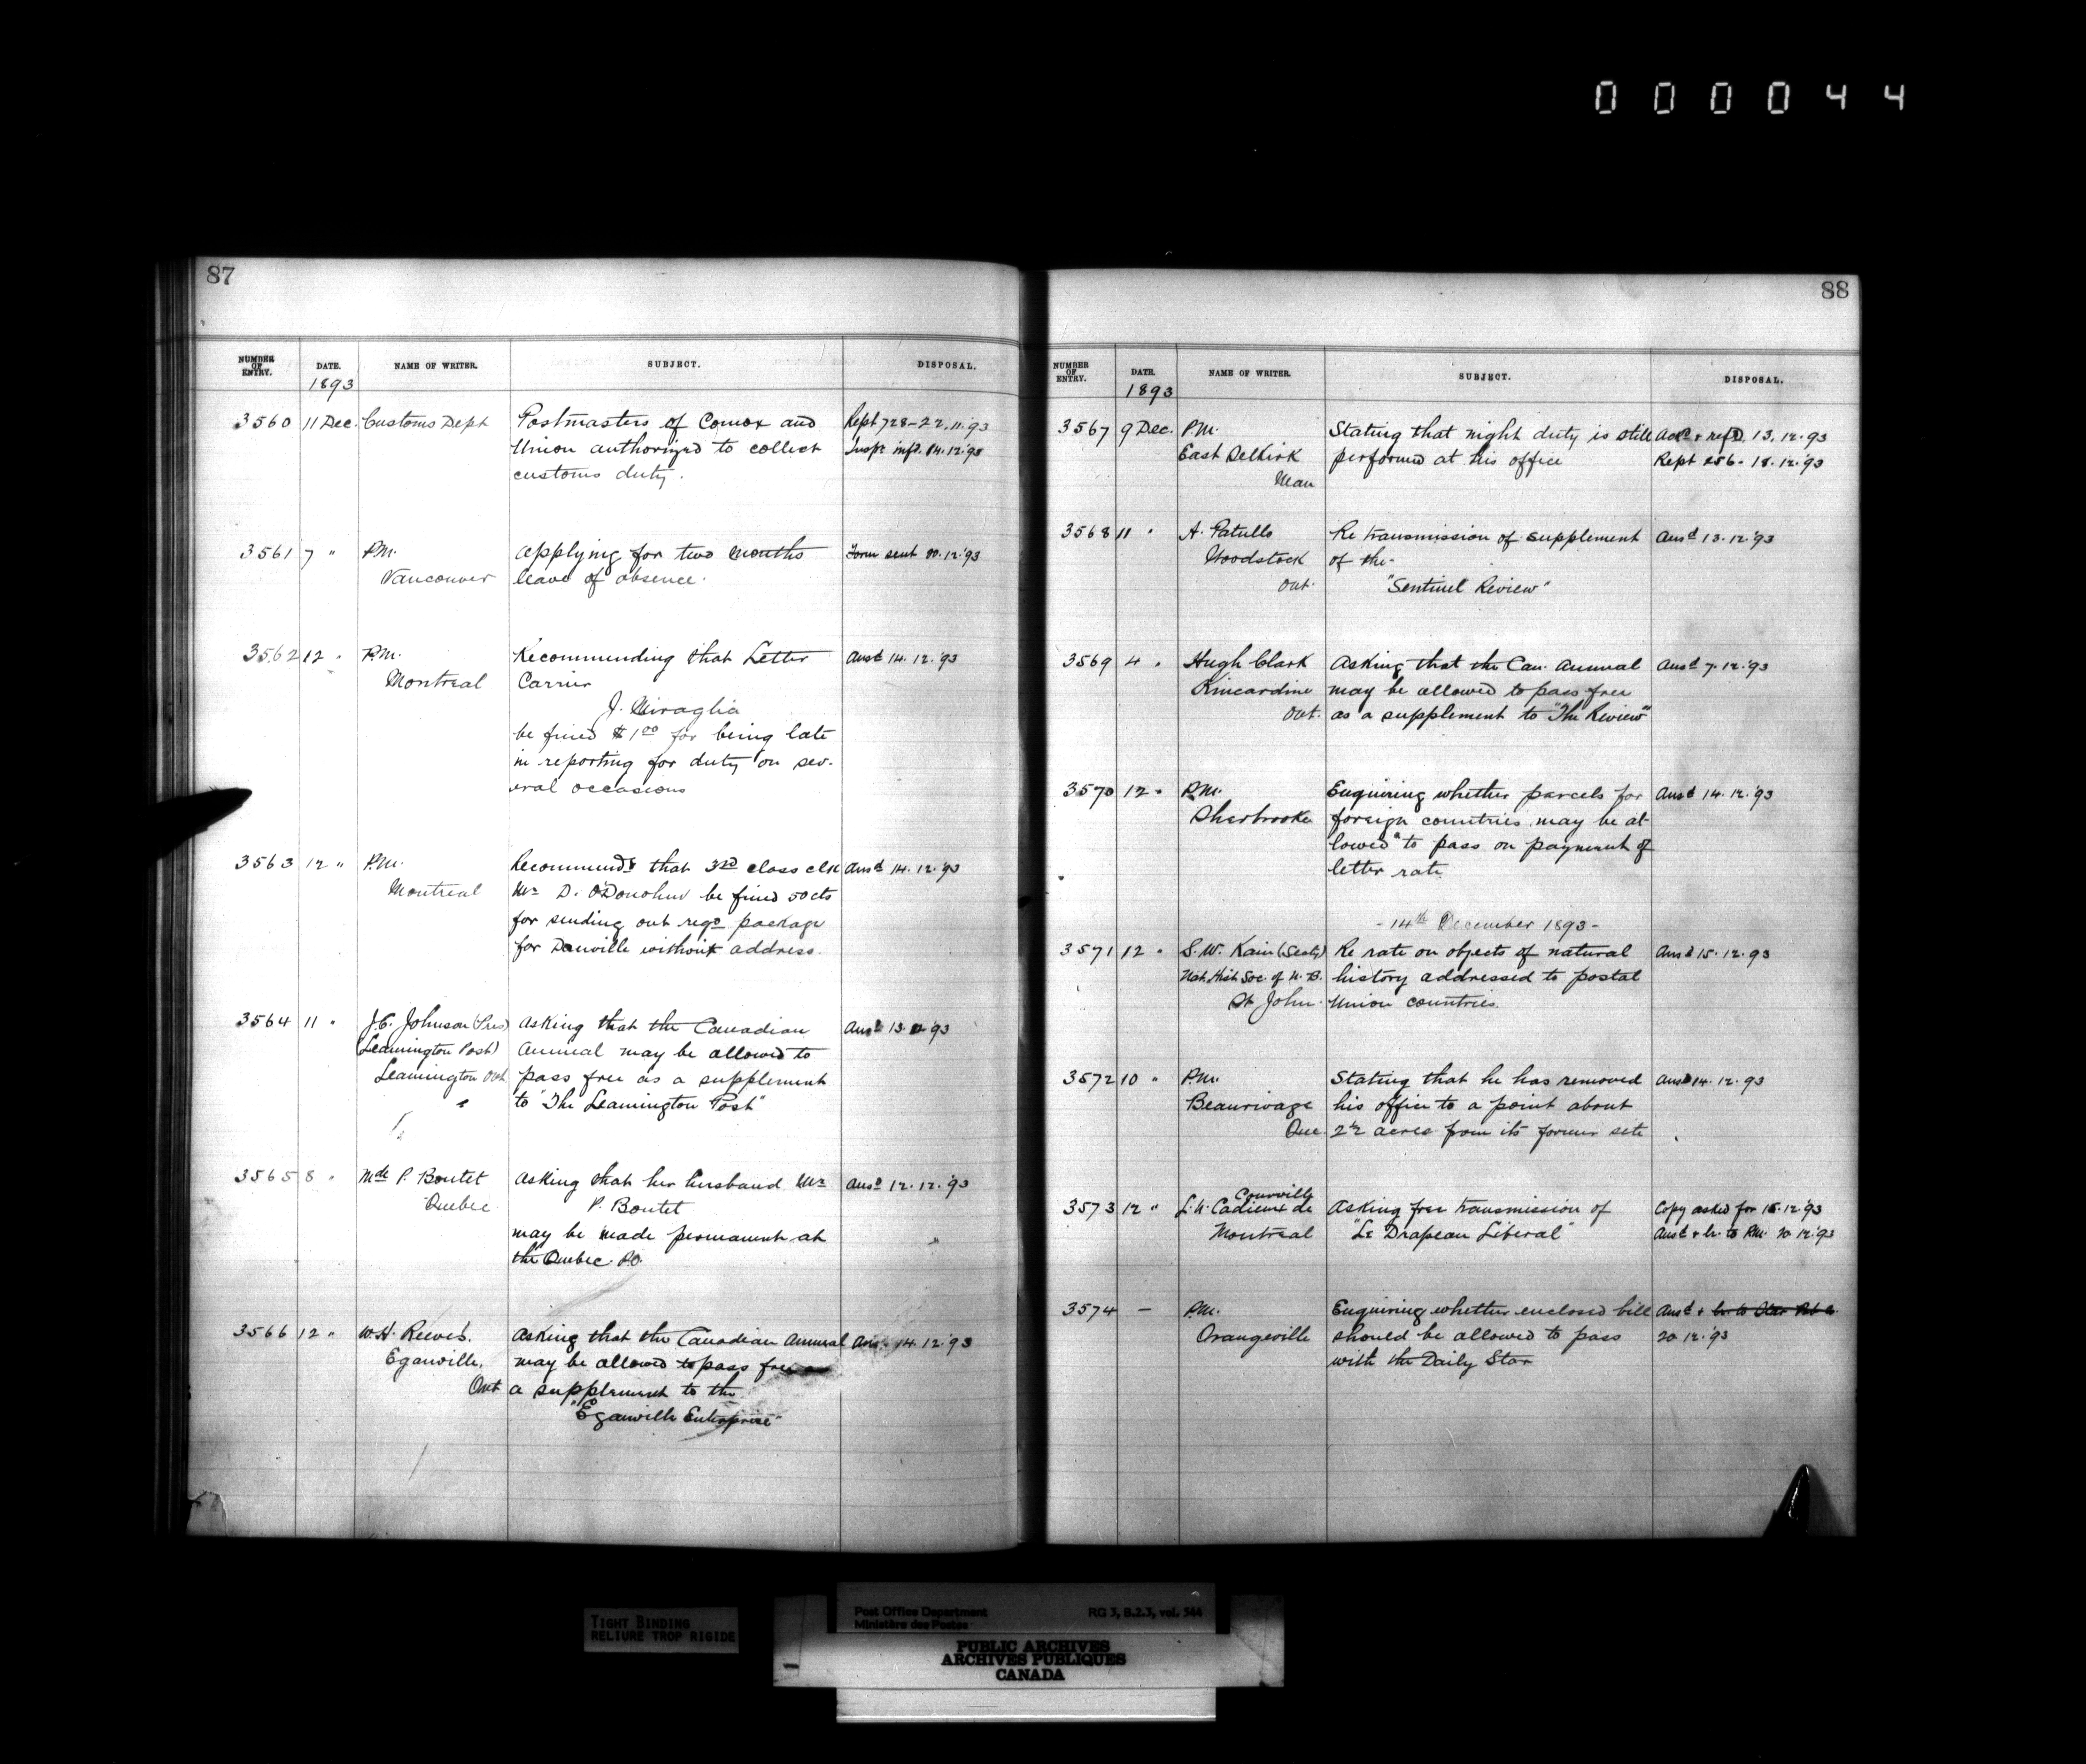 000044
87
NUMBER OF ENTRY. DATE. NAME OF WRITER. SUBJECT. DISPOSAL.
1893
3560 11 Dec. Customs Dept Postmasters of Comox and Rept 728-22.11.'93
Union authorized to collect Inspr infd. 14.12.'93
customs duty.
3561 7 " P.M. Applying for two months Form sent 20.12.'93
Vancouver leave of absence.
3562 12 " P.M. Recommending that Letter Ansd 14.12.'93
Montreal Carrier
J. Miraglia
be fined $1.00 for being late
in reporting for duty on sev-
eral occasions
3563 12 " P.M. Recommends that 3rd class clk Ansd 14.12.'93
Montreal Mr D. O'Donohue be fined 50 cts
for sending out regd package
for Danville without address.
3564 11 " J.E. Johnson (Pres) Asking that the Canadian Ansd 13.12.'93
(Leamington Post) Annual may be allowed to
Leamington Ont pass free as a supplement
to "The Leamington Post"
3565 8 " Mde P. Boutet Asking that her husband Mr Ansd 12.12.'93
Quebec P. Boutet
may be made permanent at
the Quebec P.O.
3566 12 " W.H. Reeves. Asking that the Canadian Annual Ansd 14.12.'93
Eganville, may be allowed to pass free as
Ont a supplement to the
"Eganville Enterprise"
88
NUMBER OF ENTRY. DATE. NAME OF WRITER. SUBJECT. DISPOSAL.
1893
3567 9 Dec. P.M. Stating that night duty is still Ackd & refd. 13.12.'93
East Selkirk performed at his office Rept 256-18.12.'93
Man
3568 11 " A. Patullo Re transmission of supplement Ansd 13.12.'93
Woodstock of the-
Ont. "Sentinel Review"
3569 4 " Hugh Clark Asking that the Can. Annual Ansd 7.12.'93
Kincardine may be allowed to pass free
Ont. as a supplement to "The Review"
3570 12 " P.M. Enquiring whether parcels for Ansd 14.12.'93
Sherbrooke foreign countries may be al-
lowed to pass on payment of
letter rate
-14th December 1893-
3571 12 " S.W. Kain (Secty) Re rate on objects of natural Ansd 15.12.93
Nat. Hist Soc of N.B. history addressed to postal
St John. Union countries.
3572 10 " P.M. Stating that he has removed Ansd 14.12.93
Beaurivage his office to a point about
Que. 2½ acres from its former site
Courville
3573 12 " L.N. Cadieux de Asking free transmission of Copy asked for 15.12.'93
Montreal "Le Drapeau Liberal" Ansd & lr. to P.M. 20.12.'93
3574 — P.M. Enquiring whether enclosed bill Ansd &
Orangeville should be allowed to pass 20.12.'93
with the Daily Star
TIGHT BINDING
RELIURE TROP RIGIDE
Post Office Department RG 3, B.2.3, vol. 544
Ministère des Postes
PUBLIC ARCHIVES
ARCHIVES PUBLIQUES
CANADA